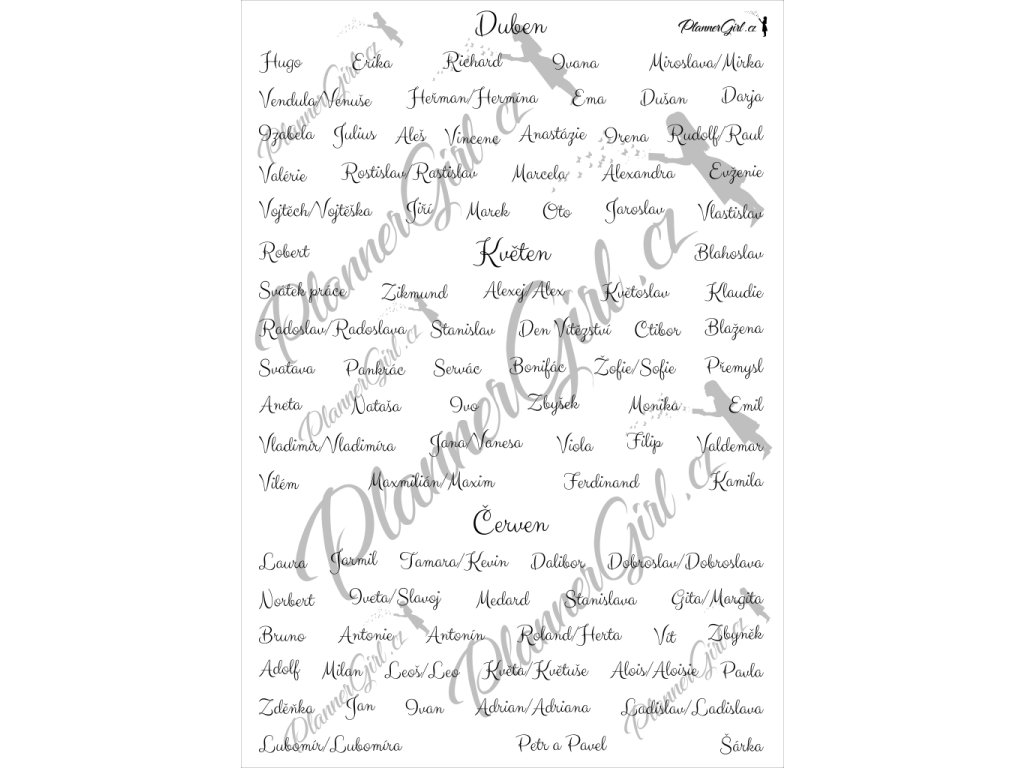 Duben PlannerGirl.cz
Hugo Erika Richard Ivana Miroslava/Mirka
Vendula/Venuše Heřman/Hermína Ema Dušan Darja
Izabela Julius Aleš Vincenc Anastázie Irena Rudolf/Raul
Valérie Rostislav/Rastislav Marcela Alexandra Evženie
Vojtěch/Vojtěška Jiří Marek Oto Jaroslav Vlastislav
Robert Květen Blahoslav
Svátek práce Zikmund Alexej/Alex Květoslav Klaudie
Radoslav/Radoslava Stanislav Den Vítězství Ctibor Blažena
Svatava Pankrác Servác Bonifác Žofie/Sofie Přemysl
Aneta Nataša Ivo Zbyšek Monika Emil
Vladimír/Vladimíra Jana/Vanesa Viola Filip Valdemar
Vilém Maxmilián/Maxim Ferdinand Kamila
Červen
Laura Jarmil Tamara/Kevin Dalibor Dobroslav/Dobroslava
Norbert Iveta/Slavoj Medard Stanislava Gita/Margita
Bruno Antonie Antonín Roland/Herta Vít Zbyněk
Adolf Milan Leoš/Leo Květa/Květuše Alois/Aloisie Pavla
Zdeňka Jan Ivan Adrian/Adriana Ladislav/Ladislava
Lubomír/Lubomíra Petr a Pavel Šárka
PlannerGirl.cz
PlannerGirl.cz
PlannerGirl.cz
PlannerGirl.cz
PlannerGirl.cz
PlannerGirl.cz
PlannerGirl.cz